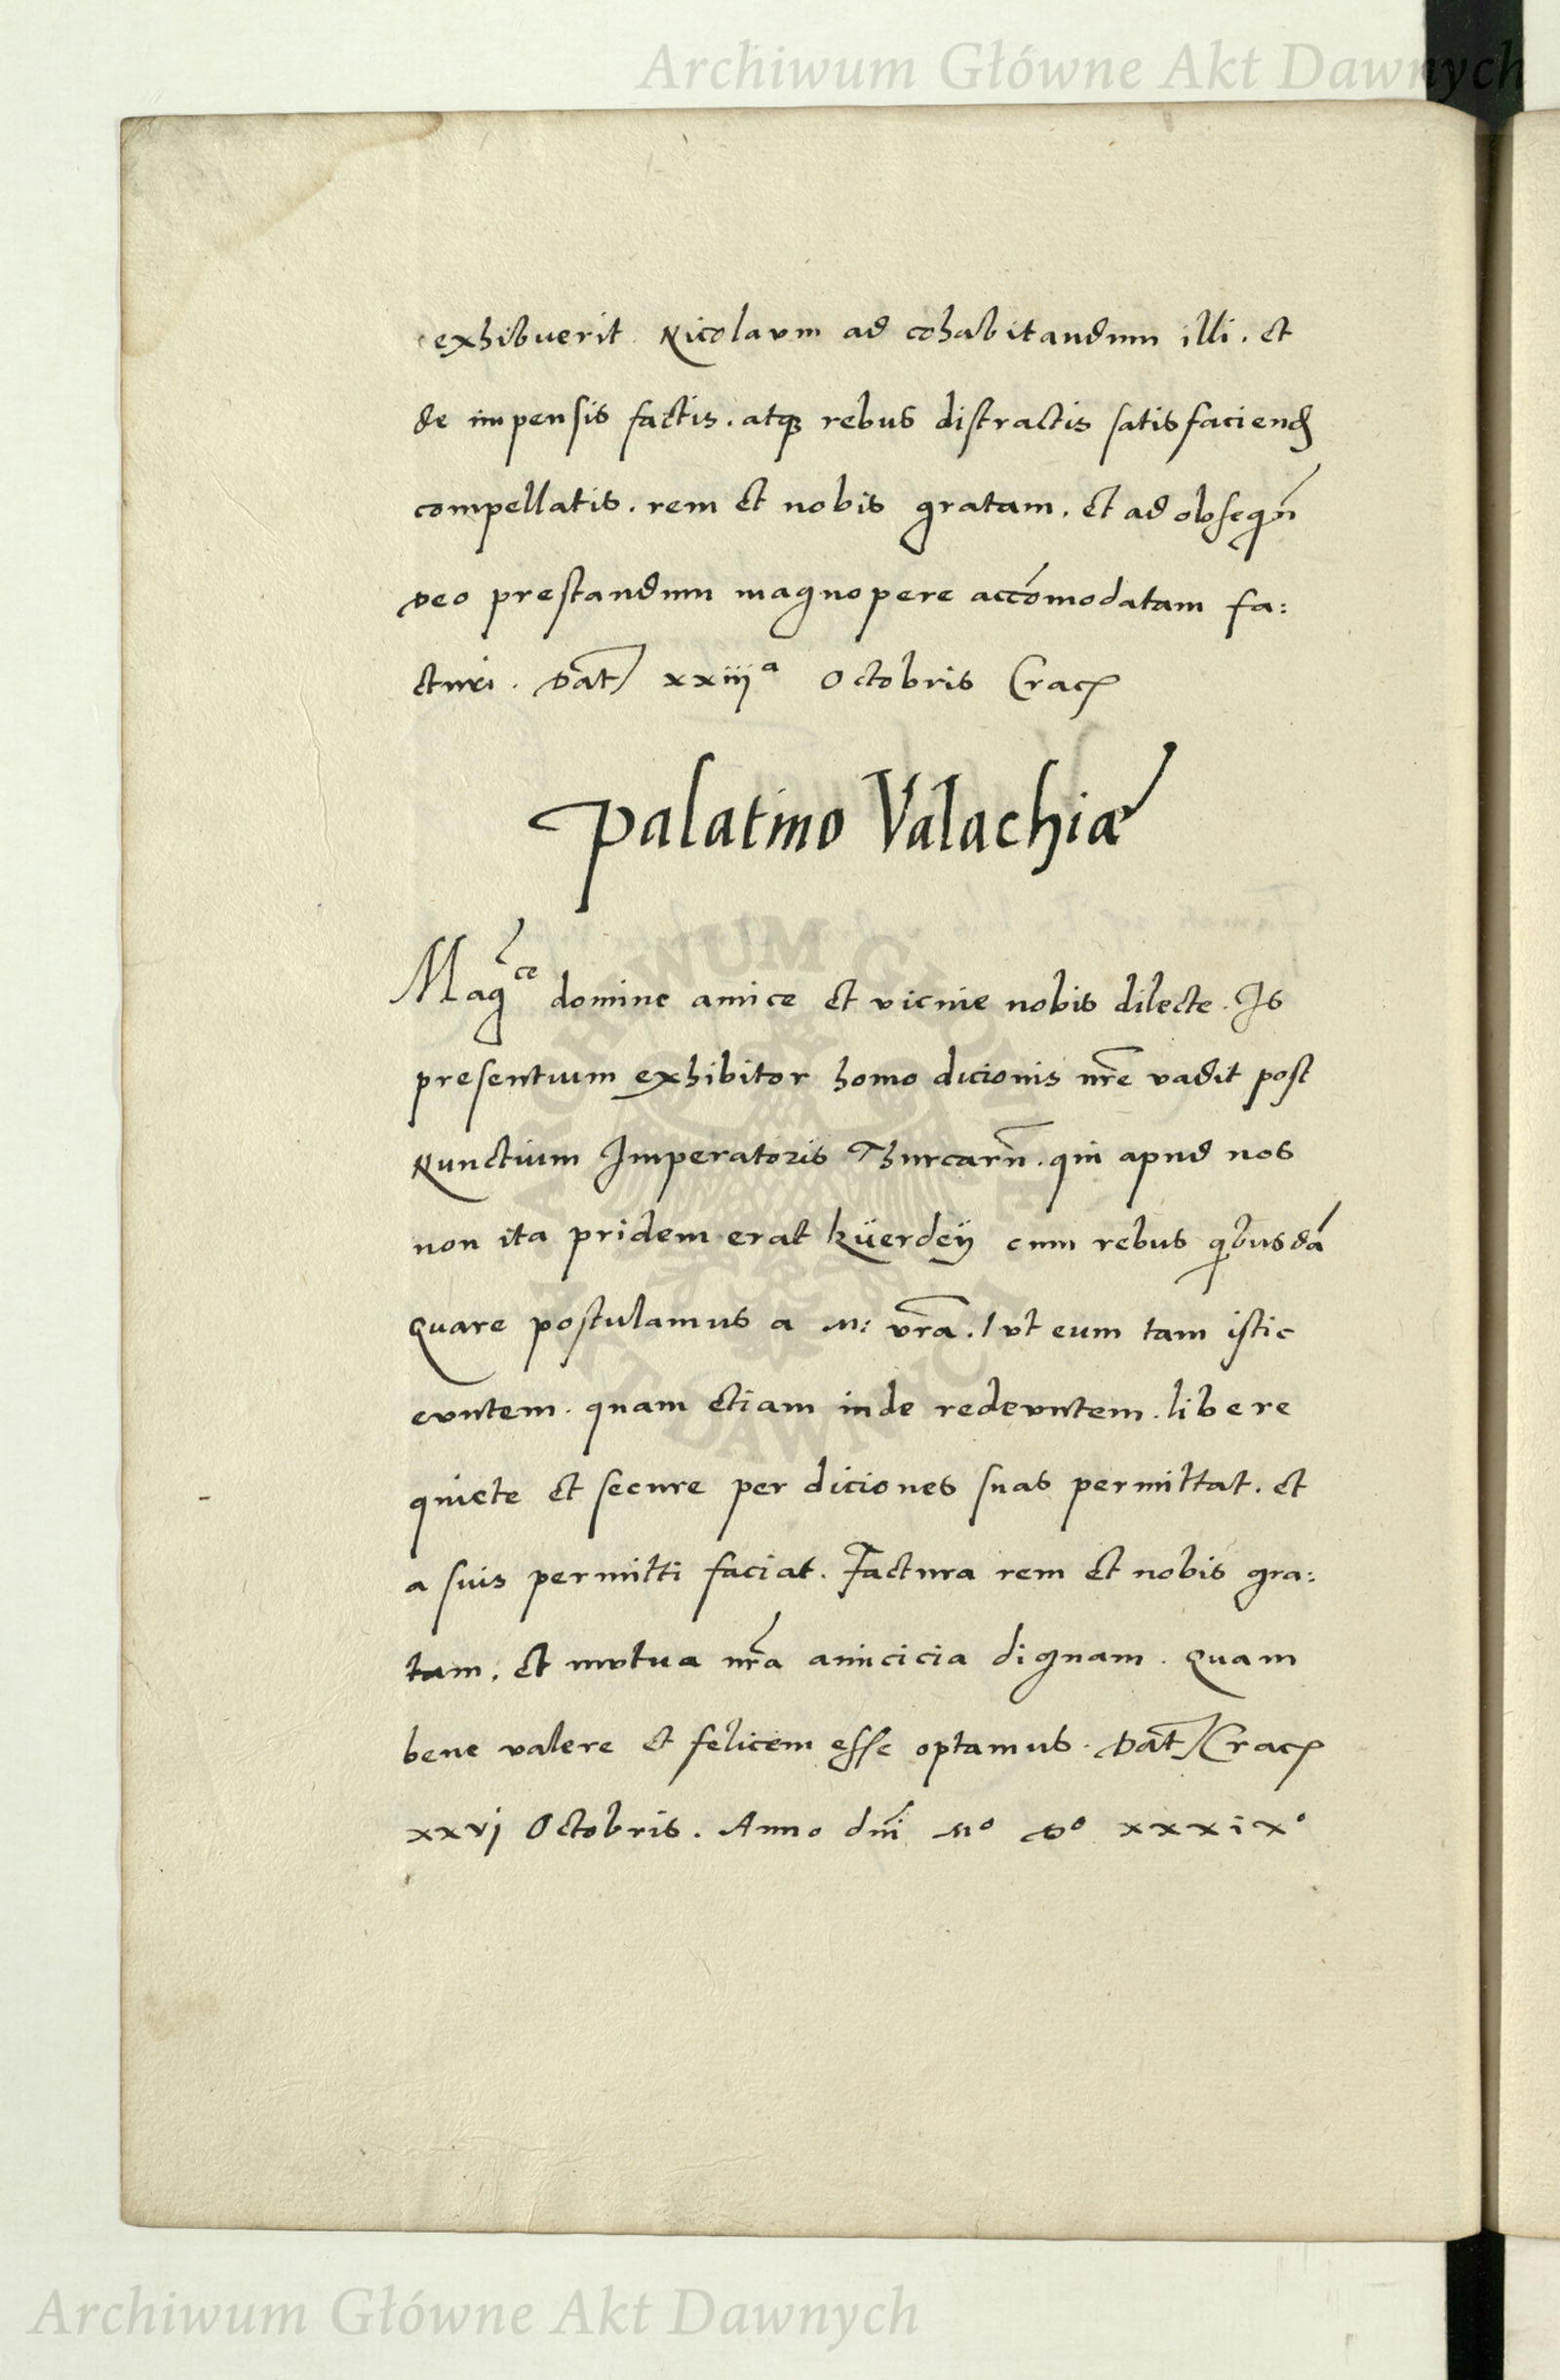 Archiwum Główne Akt Dawnych
exhibuerit. Nicolaum ad cohabitandum illi. et
de impensis factis. atqꝫ rebus distractis satisfaciend
compellatis. rem et nobis gratam. et ad obseqū
deo prestandum magnopere accōmodatam fa:
cturi. Dat̄ xxiijª Octobris Crac
Palatino Valachiæ
Magce domine amice et vicine nobis dilecte. Is
presentium exhibitor homo dicionis nr̄e vadit post
Nunctium Imperatoris Thurcarū. qui apud nos
non ita pridem erat küerdeÿ cum rebus qibusdā
Quare postulamus a M: vr̄a. ut eum tam istic
euntem. quam etiam inde redeuntem. libere
quiete et secure per diciones suas permittat. et
a suis permitti faciat. Factura rem et nobis gra:
tam. et mutua nr̄a amicicia dignam. Quam
bene valere et felicem esse optamus. Dat̄ Crac
xxvj Octobris. Anno dn̄i Mº Dº xxxixº
ARCHIWUM GŁÓWNE AKT DAWNYCH
Archiwum Główne Akt Dawnych